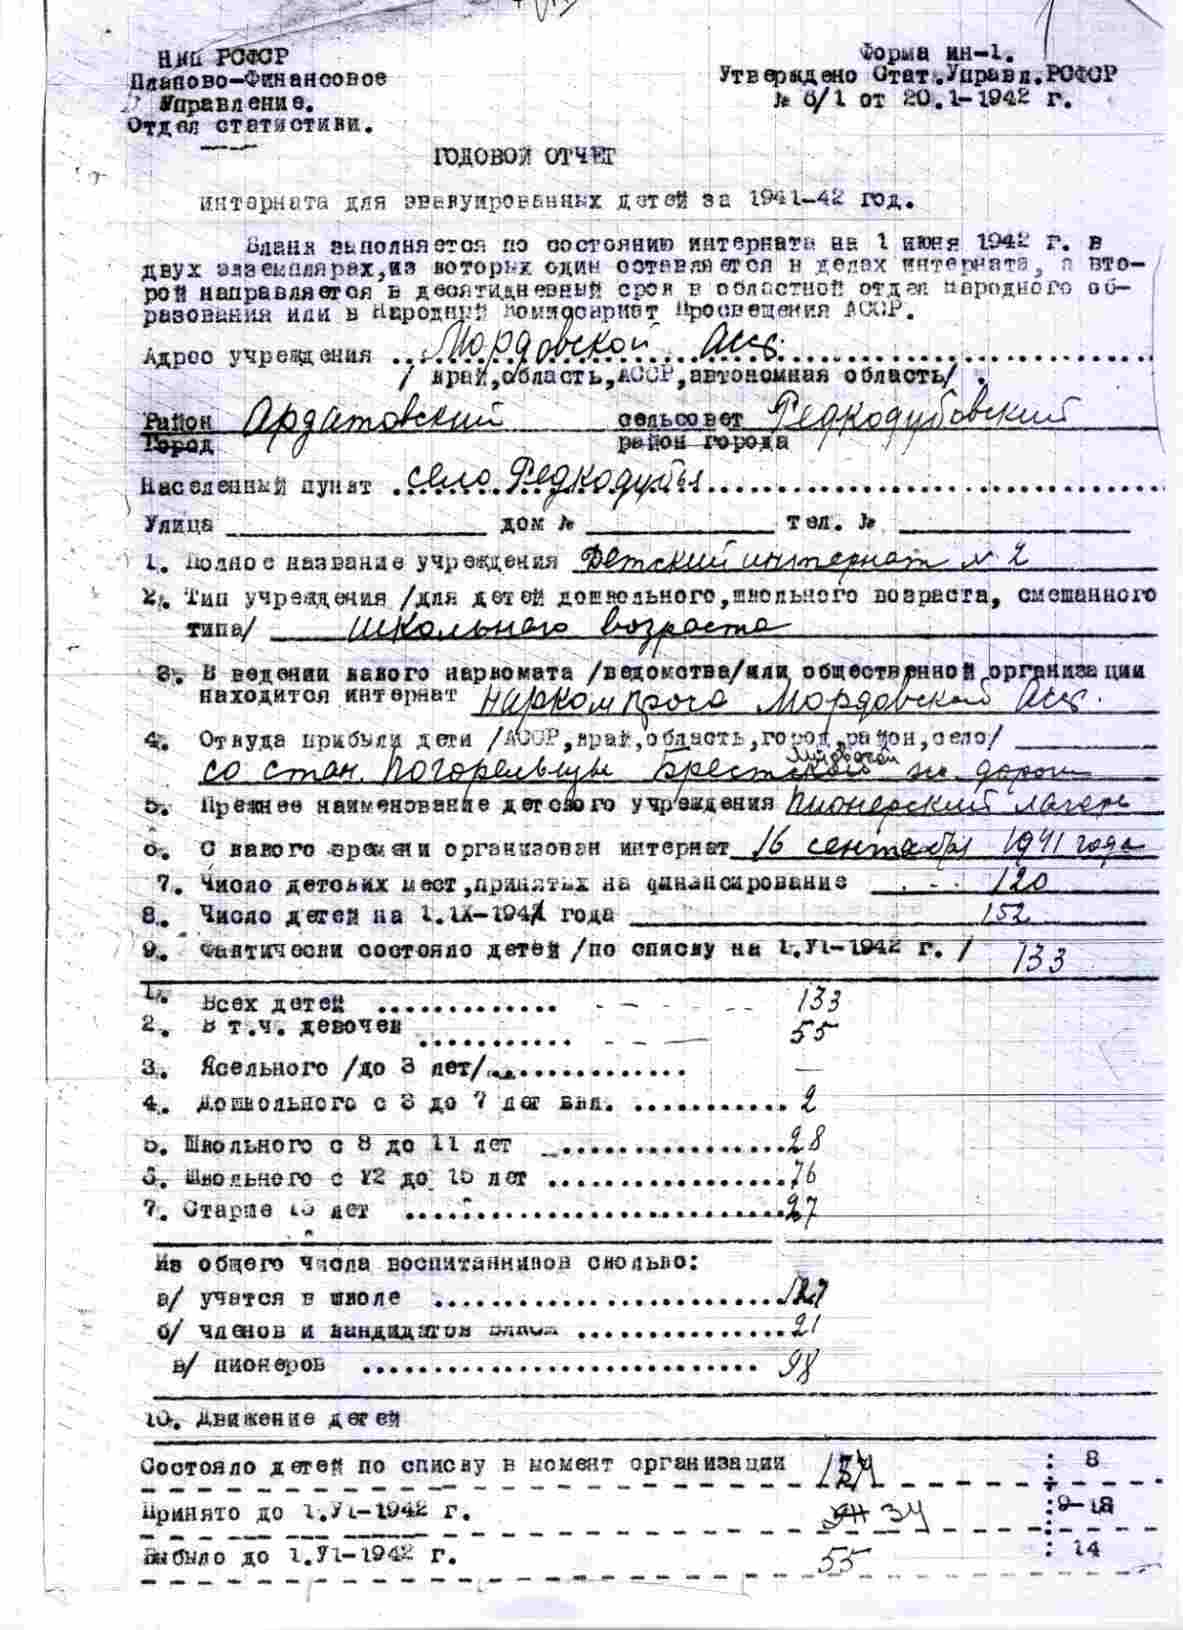 НКП РСФСР
Планово-Финансовое
Управление.
Отдел статистики.
Форма ин-1.
Утверждено Стат.Управл.РСФСР
№ 6/1 от 20.1-1942 г.
ГОДОВОЙ ОТЧЕТ
интерната для эвакуированных детей за 1941-42 год.
Бланк выполняется по состоянию интерната на 1 июня 1942 г. в
двух экземплярах,из которых один оставляется в делах интерната, а вто-
рой направляется в десятидневный срок в областной отдел народного об-
разования или в Народный Комиссариат Просвещения АССР.
Адрес учреждения ... Мордовской Асср.
/ край,область,АССР,автономная область/ .
Район Ардатовский сельсовет Редкодубовский
Город район города
Населенный пункт село Редкодубья
Улица ____ дом № ____ тел. № ____
1. Полное название учреждения Детский интернат № 2
2. Тип учреждения /для детей дошкольного,школьного возраста, смешанного
типа/ школьного возраста
3. В ведении какого наркомата /ведомства/или общественной организации
находится интернат Наркомпроса Мордовской Асср.
4. Откуда прибыли дети /АССР,край,область,город,район,село/
со стан. Погорельцы Брестской жел. дороги
5. Прежнее наименование детского учреждения Пионерский лагерь
6. С какого времени организован интернат 16 сентября 1941 года
7. Число детских мест,принятых на финансирование 120
8. Число детей на 1.IX-1941 года 152
9. Фактически состояло детей /по списку на 1.УI-1942 г. / 133
1. Всех детей .............. 133
2. В т.ч. девочек ........... 55
3. Ясельного /до 3 лет/.............. —
4. Дошкольного с 3 до 7 лет вкл. ........... 2
5. Школьного с 8 до 11 лет ................ 28
6. Школьного с 12 до 15 лет ................. 76
7. Старше 15 лет ........................... 27
Из общего числа воспитанников сколько:
а/ учатся в школе ......................... 127
б/ членов и кандидатов ВЛКСМ ............... 21
в/ пионеров ............................ 98
10. Движение детей
Состояло детей по списку в момент организации 154 : 8
Принято до 1.УI-1942 г. 34 :9-13
Выбыло до 1.УI-1942 г. 55 : 14